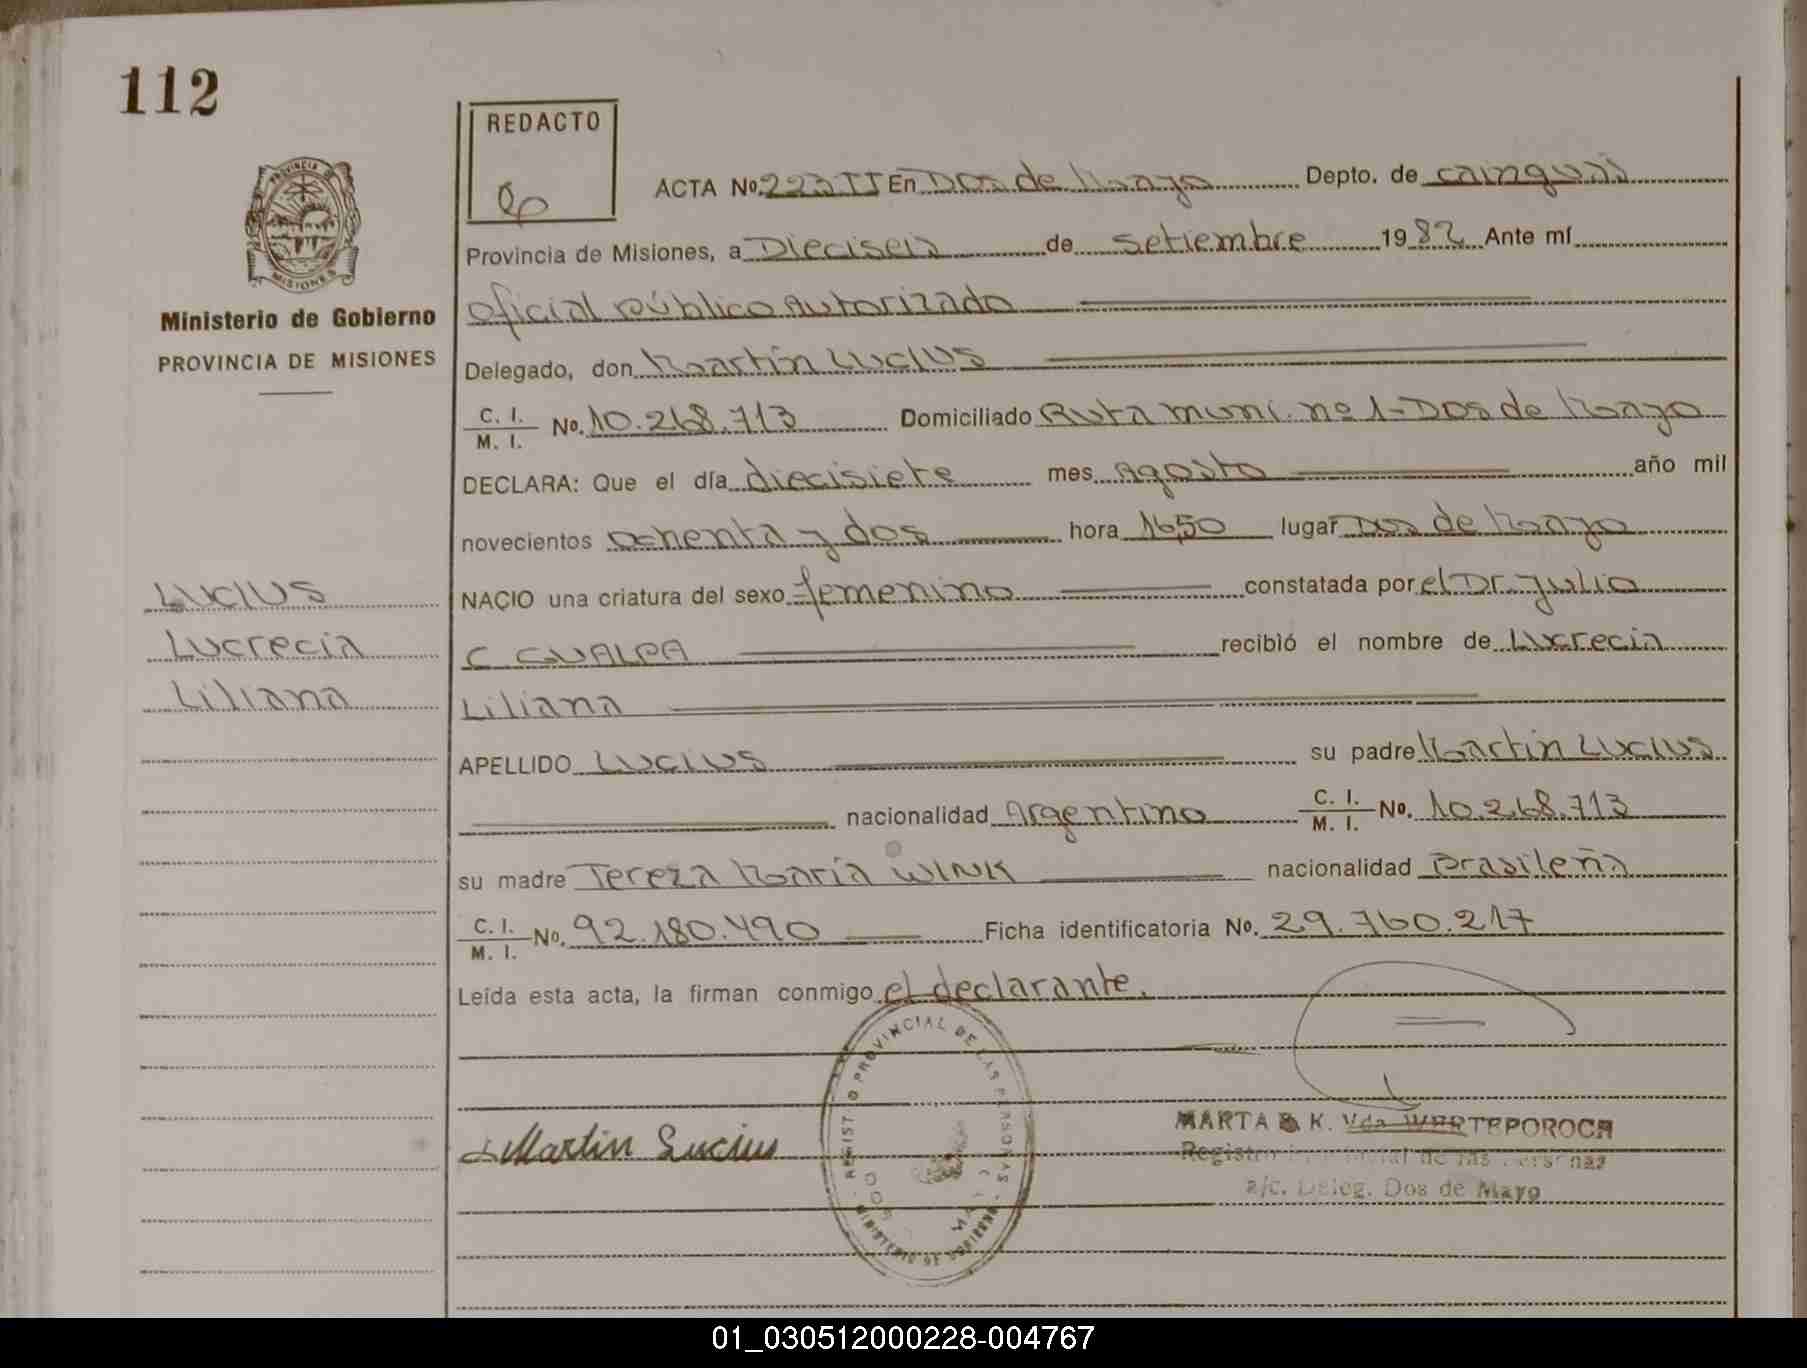 112
REDACTO
PROVINCIA DE
MISIONES
Ministerio de Gobierno
PROVINCIA DE MISIONES
ACTA No. 223 II En Dos de Mayo Depto. de cainguás
Provincia de Misiones, a Dieciseis de setiembre 1982 Ante mí
oficial público autorizado
Delegado, don Martín LUCIUS
C. I. M. I. No. 10.268.713 Domiciliado Ruta muni. nº 1-Dos de Mayo
DECLARA: Que el día diecisiete mes Agosto año mil
novecientos ochenta y dos hora 16,50 lugar Dos de Mayo
NACIO una criatura del sexo femenino constatada por el Dr. Julio
C GUALPA recibió el nombre de Lucrecia
Liliana
APELLIDO LUCIUS su padre Martín LUCIUS
nacionalidad Argentino C. I. M. I. No. 10.268.713
su madre Tereza María WINK nacionalidad Brasileña
C. I. M. I. No. 92.180.490 Ficha identificatoria No. 29.760.217
Leída esta acta, la firman conmigo el declarante.
LUCIUS
Lucrecia
Liliana
Martin Lucius
REGISTRO PROVINCIAL DE LAS PERSONAS
MARTA K. Vda WERTEPOROCH
Registro Provincial de las Personas
a/c. Deleg. Dos de Mayo
01_030512000228-004767